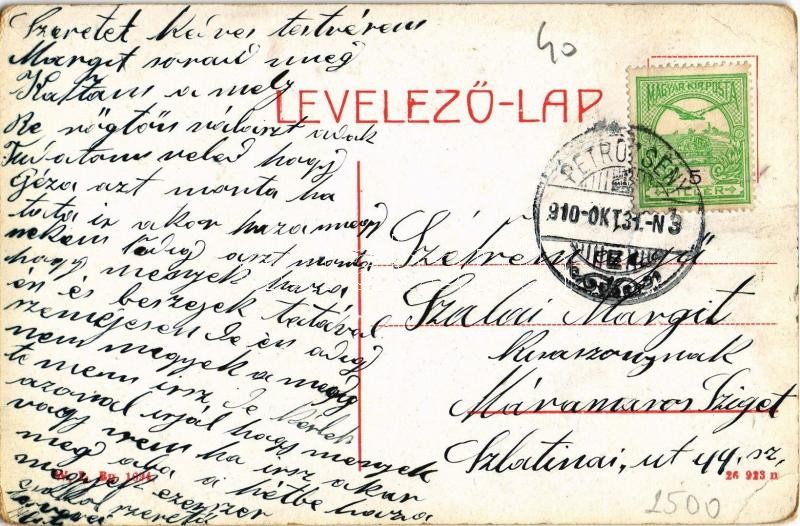 Szeretet Keives testvérem
Margit soraid meg
Kaptam a mely
Re rögtön választ adok
Tudatom veled hogy
Géza azt monta ha
tata is akor haza megy
nekem pedig aszt monta
hogy menyek haza
én és beszejek tatával
személjesen De én adig
nem megyek a meg
te nem irsz De kérlek
azonal irjál hogy menyek
vagy nem ha irsz akor
még a hétbe haza
megyek ezerszer
csokol szerető
40
LEVELEZŐ-LAP
MAGYAR KIR. POSTA
5
FILLÉR
PETROZSENY
910-OKT.31.-N3
Szalai Margit
Kisaszonynak
Máramaros Sziget
Szlatinai, ut 49. sz.
26 923 n
2500